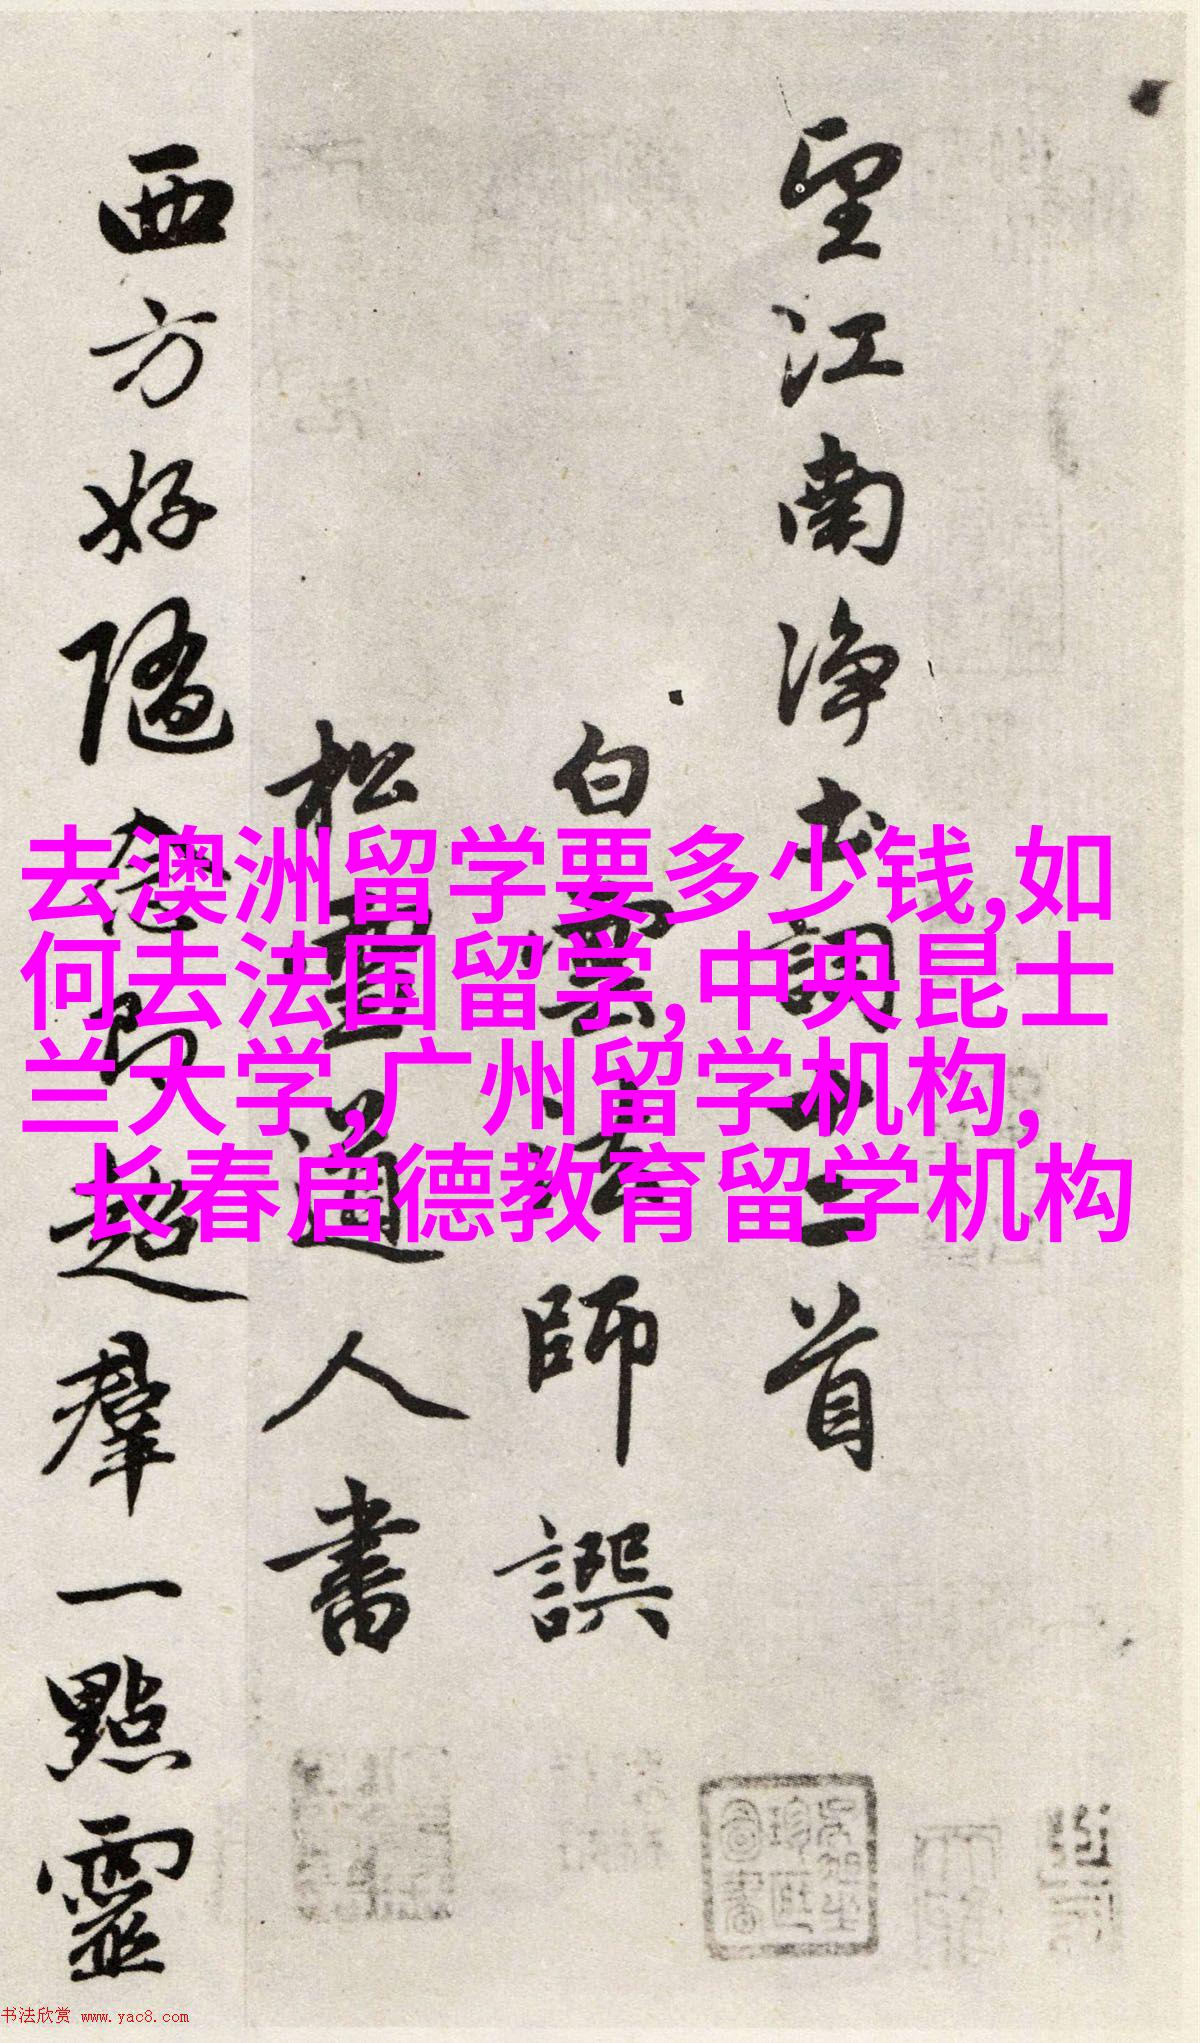 望江南淨土詞十二首
白雲法師譔
松雪道人書
西方好隨念即超羣一點靈
去澳洲留学要多少钱,如
何去法国留学,中央昆士
兰大学,广州留学机构,
长春启德教育留学机构
书法欣赏 www.yac8.com